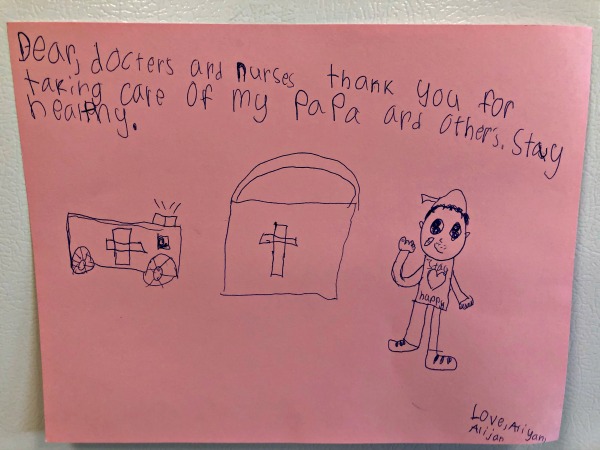 Dear, docters and nurses thank you for
taking care of my papa and others. Stay
healthy.
Stay
happy
Love, Ariyan,
Arijan